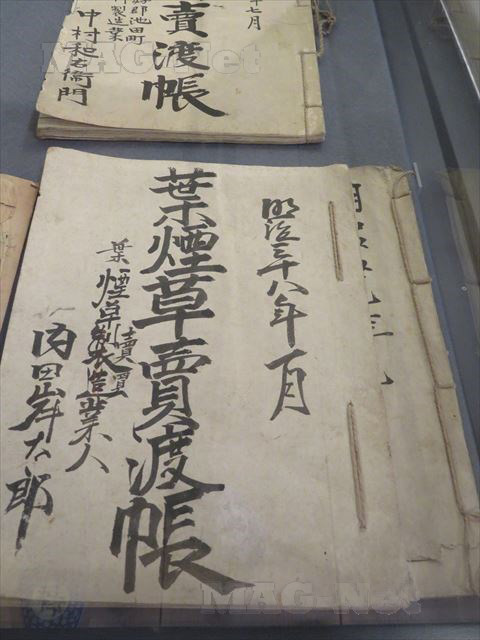 年七月
賣渡帳
郡池田町
製造業
中村和右衛門
明治三十八年一月
葉煙草賣渡帳
葉煙草賣買
業人
内田岸太郎
MAG-Net
MAG-Net